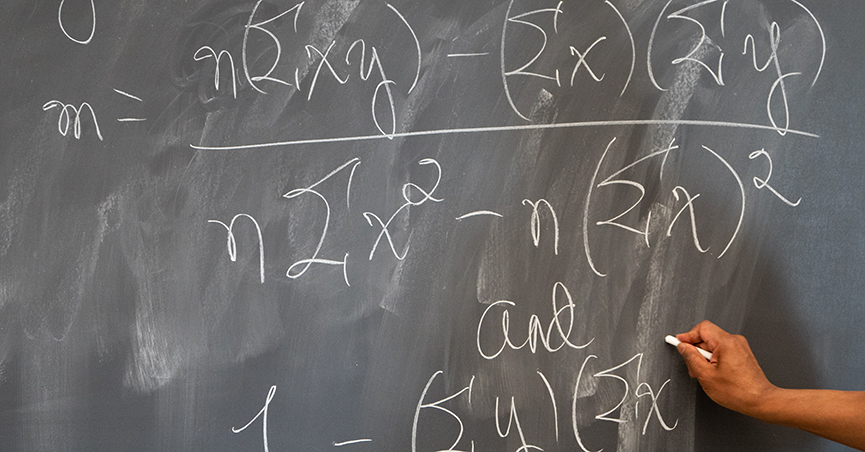 y
m = n(∑xy) − (∑x)(∑y)
n∑x² − n(∑x)²
and
− (∑y)(∑x